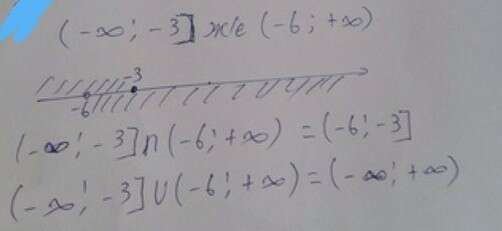 (-∞; -3] же (-6; +∞)
-3
-6
(-∞; -3]∩(-6; +∞) = (-6; -3]
(-∞; -3]∪(-6; +∞) = (-∞; +∞)